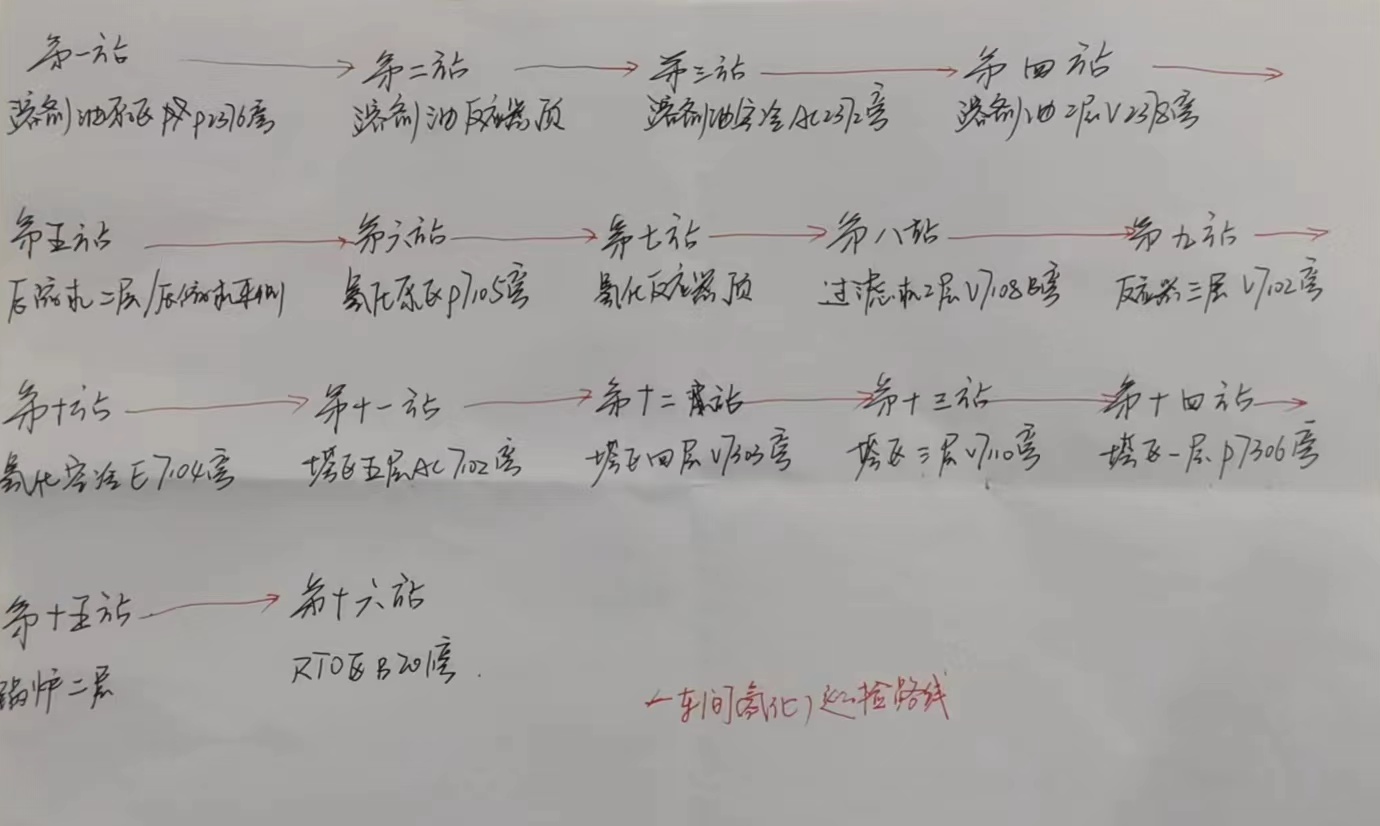 第一站 第二站 第三站 第四站
溶剂油泵区 P2376旁 溶剂油反应器顶 溶剂油空冷AC2372旁 溶剂油2层V2378旁
第五站 第六站 第七站 第八站 第九站
压滤机二层/压滤机东侧 氢化泵区P7105旁 氢化反应器顶 过滤机2层V7108B旁 反应器三层V7102旁
第十站 第十一站 第十二站 第十三站 第十四站
氢化空冷E7104旁 塔区五层AC7102旁 塔区四层V7303旁 塔区三层V7110旁 塔区一层P7306旁
第十五站 第十六站
锅炉二层 RTO区B201旁.
一车间(氢化)巡检路线